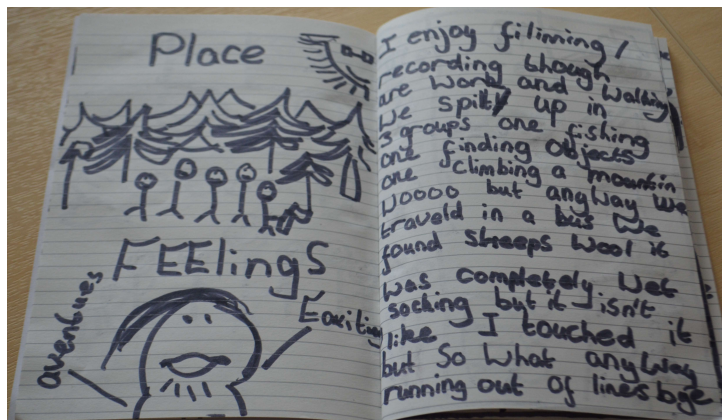 Place
FEElings
aventues
Exxiting
I enjoy filimming /
recording though
are work and walking
We spilty up in
3 groups one fishing
one finding objects
one climbing a mountin
woooo but anyway we
traveld in a bus We
found sheeps wool it
was completely wet
socking but it isn't
like I touched it
but So what anyway
running out of lines bye